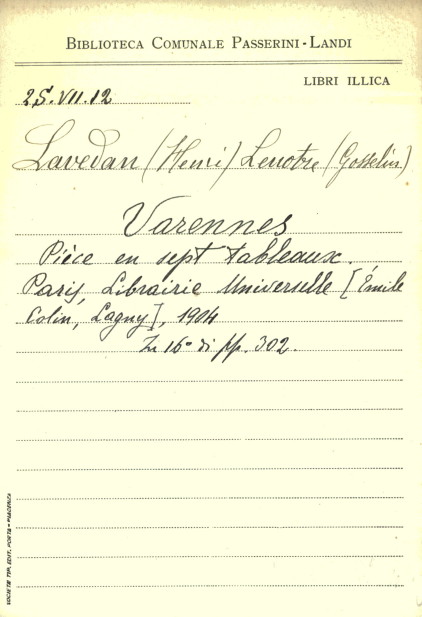 BIBLIOTECA COMUNALE PASSERINI-LANDI
LIBRI ILLICA
25.VII.12
Lavedan (Henri) Lenotre (Gosselin)
Varennes
Pièce en sept tableaux.
Paris, Librairie Universelle [Émile
Colin, Lagny], 1904
In 16° di pp. 302.
SOCIETÀ TIP. EDIT. PORTA - PIACENZA